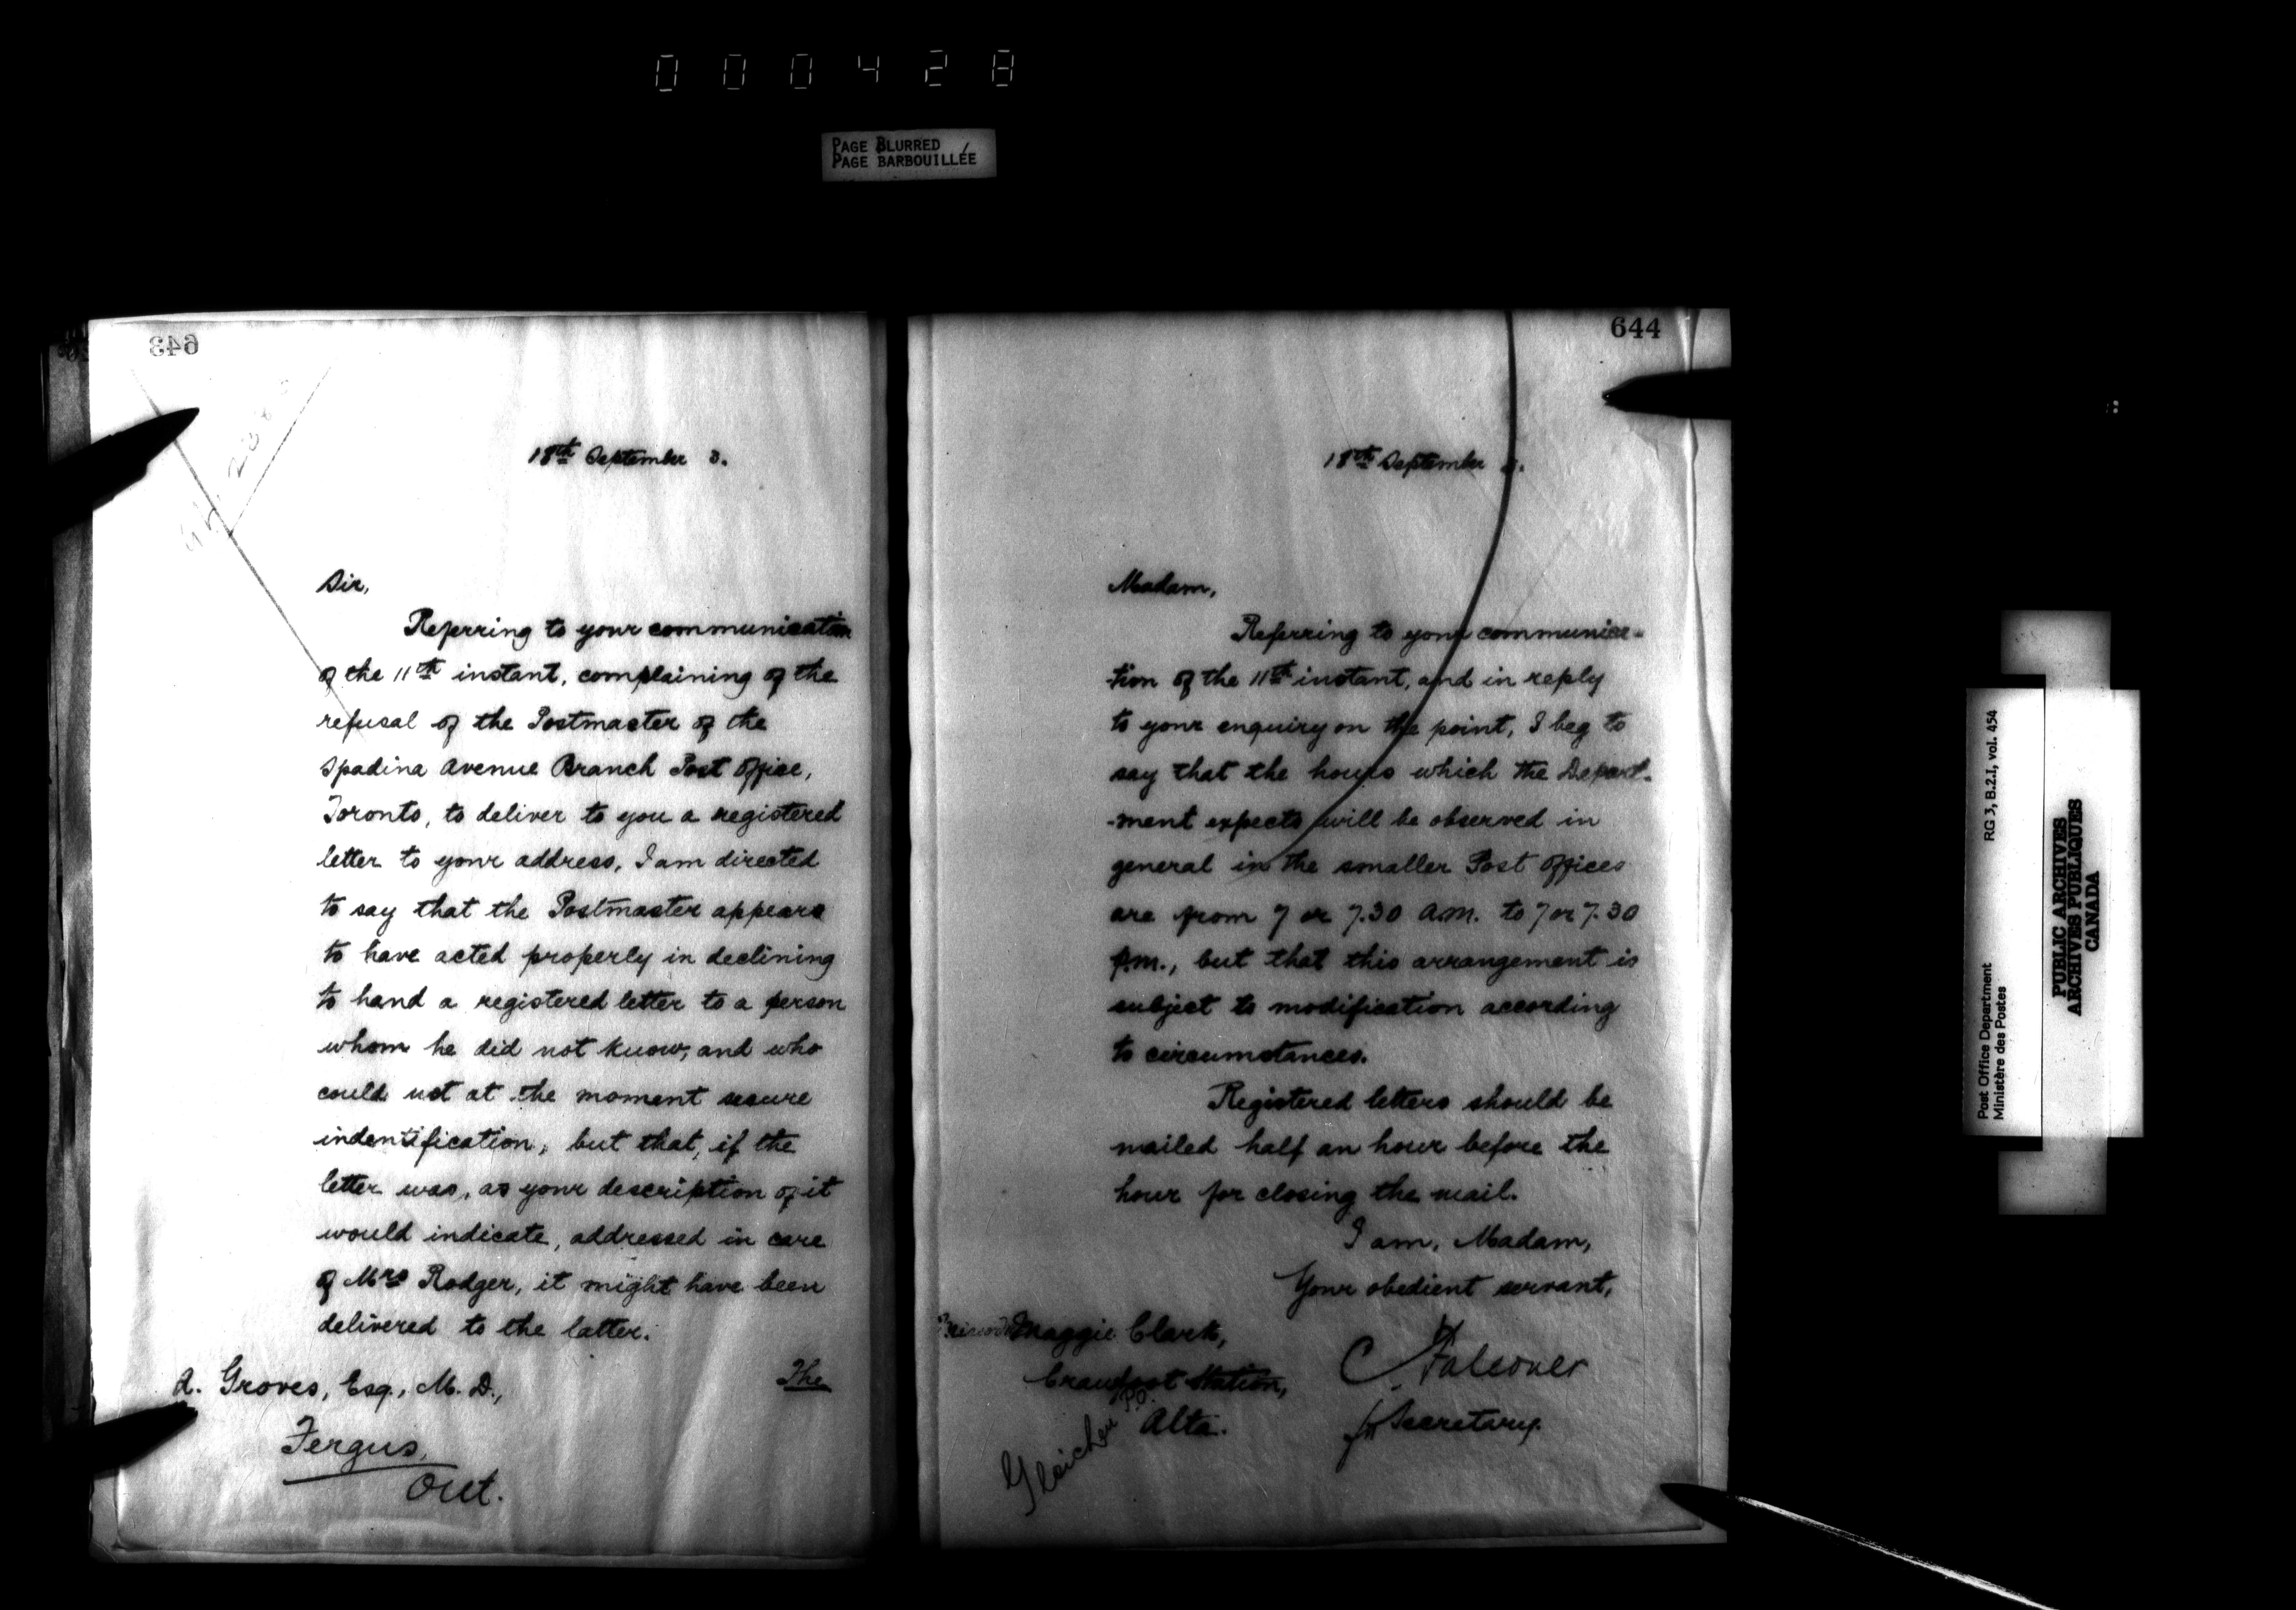 000428
PAGE BLURRED
PAGE BARBOUILLÉE
643
18th September 3.
Sir,
Referring to your communication
of the 11th instant, complaining of the
refusal of the Postmaster of the
Spadina Avenue Branch Post Office,
Toronto, to deliver to you a registered
letter to your address, I am directed
to say that the Postmaster appears
to have acted properly in declining
to hand a registered letter to a person
whom he did not know, and who
could not at the moment secure
indentification, but that, if the
letter was, as your description of it
would indicate, addressed in care
of Mrs Rodger, it might have been
delivered to the latter.
The
A. Groves, Esq., M. D.,
Fergus,
Ont.
644
18th September 3.
Madam,
Referring to your communica-
-tion of the 11th instant, and in reply
to your enquiry on the point, I beg to
say that the hours which the Depart-
-ment expects will be observed in
general in the smaller Post Offices
are from 7 or 7.30 A.M. to 7 or 7.30
P.M., but that this arrangement is
subject to modification according
to circumstances.
Registered letters should be
mailed half an hour before the
hour for closing the mail.
I am, Madam,
Your obedient servant,
Maggie Clark,
Station,
Alta.
Gleichen P.O.
C Falconer
Secretary.
Post Office Department
Ministère des Postes
RG 3, B.2.I, vol. 454
PUBLIC ARCHIVES
ARCHIVES PUBLIQUES
CANADA